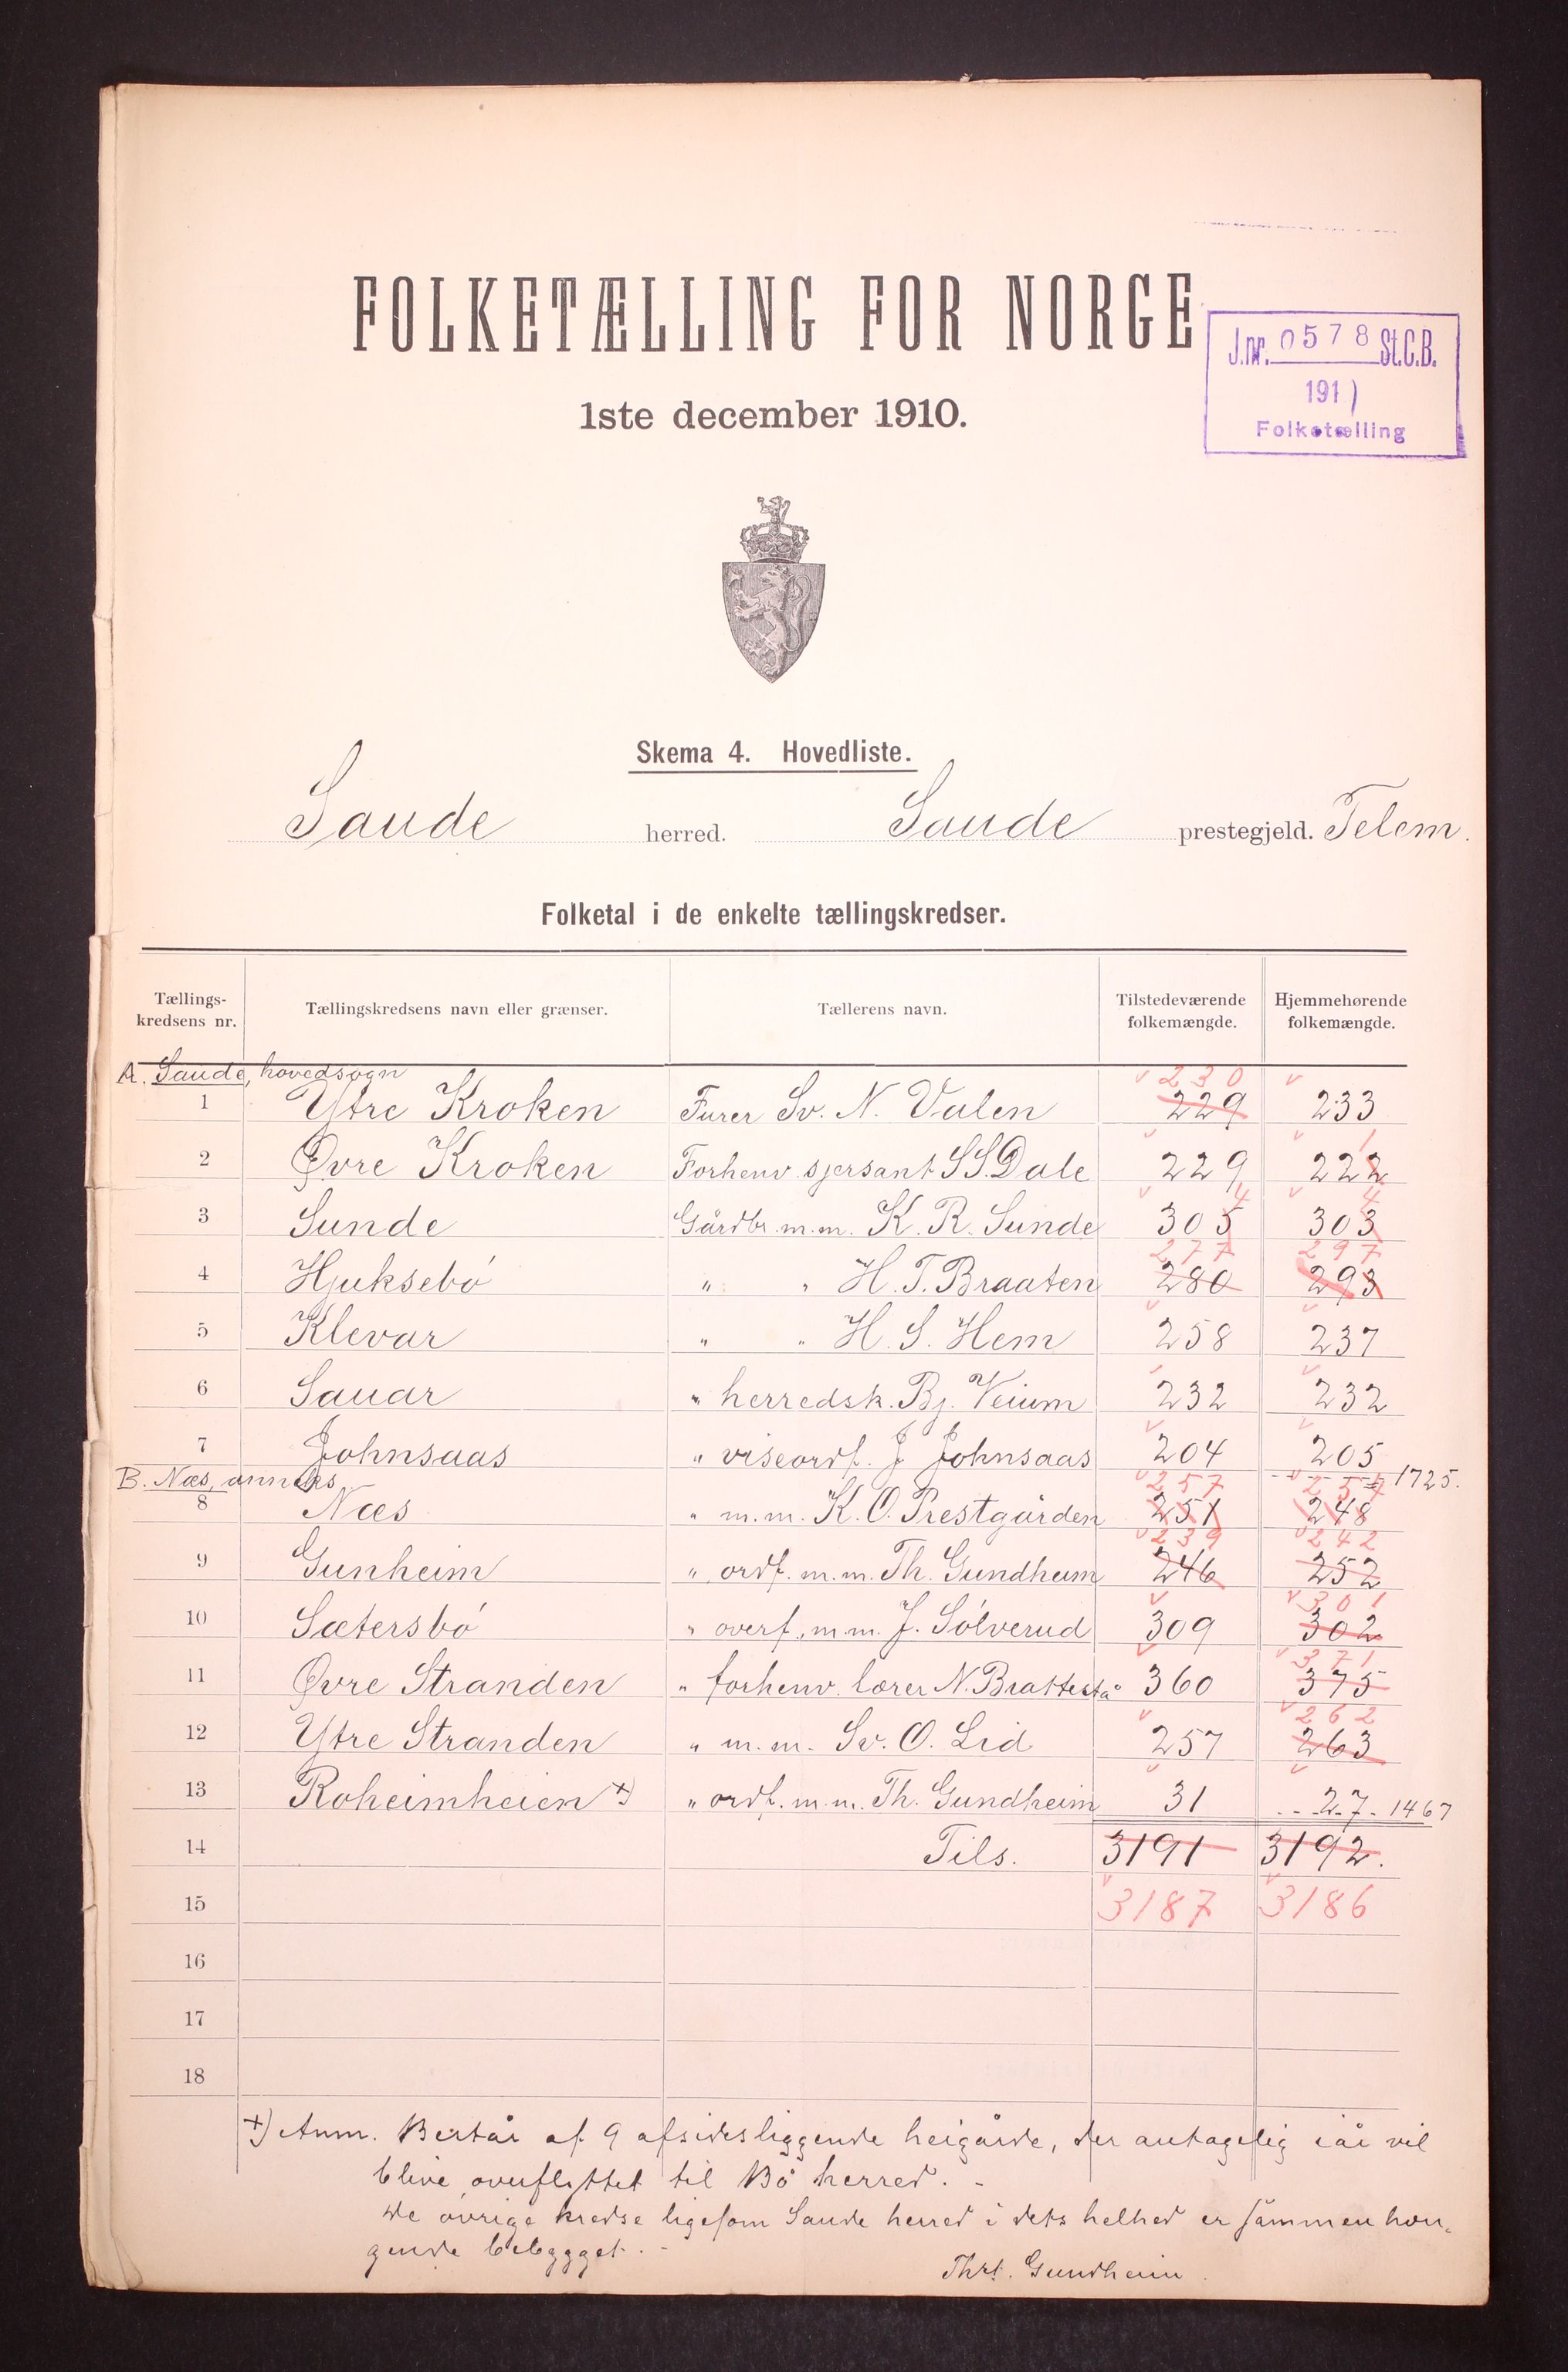 FOLKETÆLLING FOR NORGE
J.nr. 0578 St.C.B.
191
Folketælling
1ste december 1910.
Skema 4. Hovedliste.
Saude herred. Saude prestegjeld. Telem.
Folketal i de enkelte tællingskredser.
Tællings-kredsens nr. Tællingskredsens navn eller grænser. Tællerens navn. Tilstedeværende folkemængde. Hjemmehørende folkemængde.
A. Saude, hovedsogn
230
1 Ytre Kroken Furer Sv. N. Valen 229 233
1
2 Øvre Kroken Forhenv. sjersant S S. Dale 229 222
4 4
3 Sunde Gårdbr. m.m. K. R. Sunde 305 303
277 297
4 Hjuksebö " " H. T. Braaten 280 293
5 Klevar " " H. S. Hem 258 237
6 Sauar " herredsk. Bj. Veium 232 232
7 Johnsaas " viseordf. J Johnsaas 204 205
B. Næs, anneks 1725.
257 254
8 Næs " m.m. K. O. Prestgården 251 248
239 242
9 Gunheim " ordf. m.m. Th. Gundheim 246 252
301
10 Sætersbö " overf. m.m. J. Sölverud 309 302
371
11 Øvre Stranden " forhenv. lærer N. Brattestå 360 375
262
12 Ytre Stranden " m.m. Sv. O. Lid 257 263
13 Roheimheien +) " ordf. m.m. Th. Gundheim 31 27 1467
14 Tils. 3191 3192.
15 3187 3186
16
17
18
+) Anm. Består af 9 afsidesliggende heigårde, der antagelig iår vil
blive overflyttet til Bö herred. -
De övrige kredse ligesom Saude herred i dets helhed er sammenhæn-
gende bebygget. -
Thrt. Gundheim.